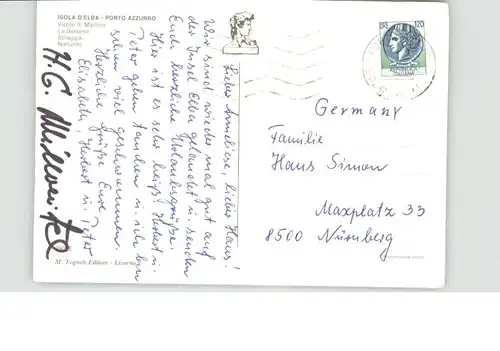 ISOLA D'ELBA - PORTO AZZURRO
Vicolo S. Martino
La Darsena
Spiaggia
Notturno
Liebe Anneliese, lieber Hans!
Wir sind wieder mal gut auf
der Insel Elba gelandet u. senden
Euch herzliche Urlaubsgrüße.
Hier ist es sehr heiß. Herbert u.
Peter gehen tauchen u. ich bin
schon viel geschwommen.
Herzliche Grüße Eure
Elisabeth, Herbert u. Peter
H. G.
M. Tognoli Editore - Livorno
120
Germany
Familie
Hans Simon
Maxplatz 33
8500 Nürnberg